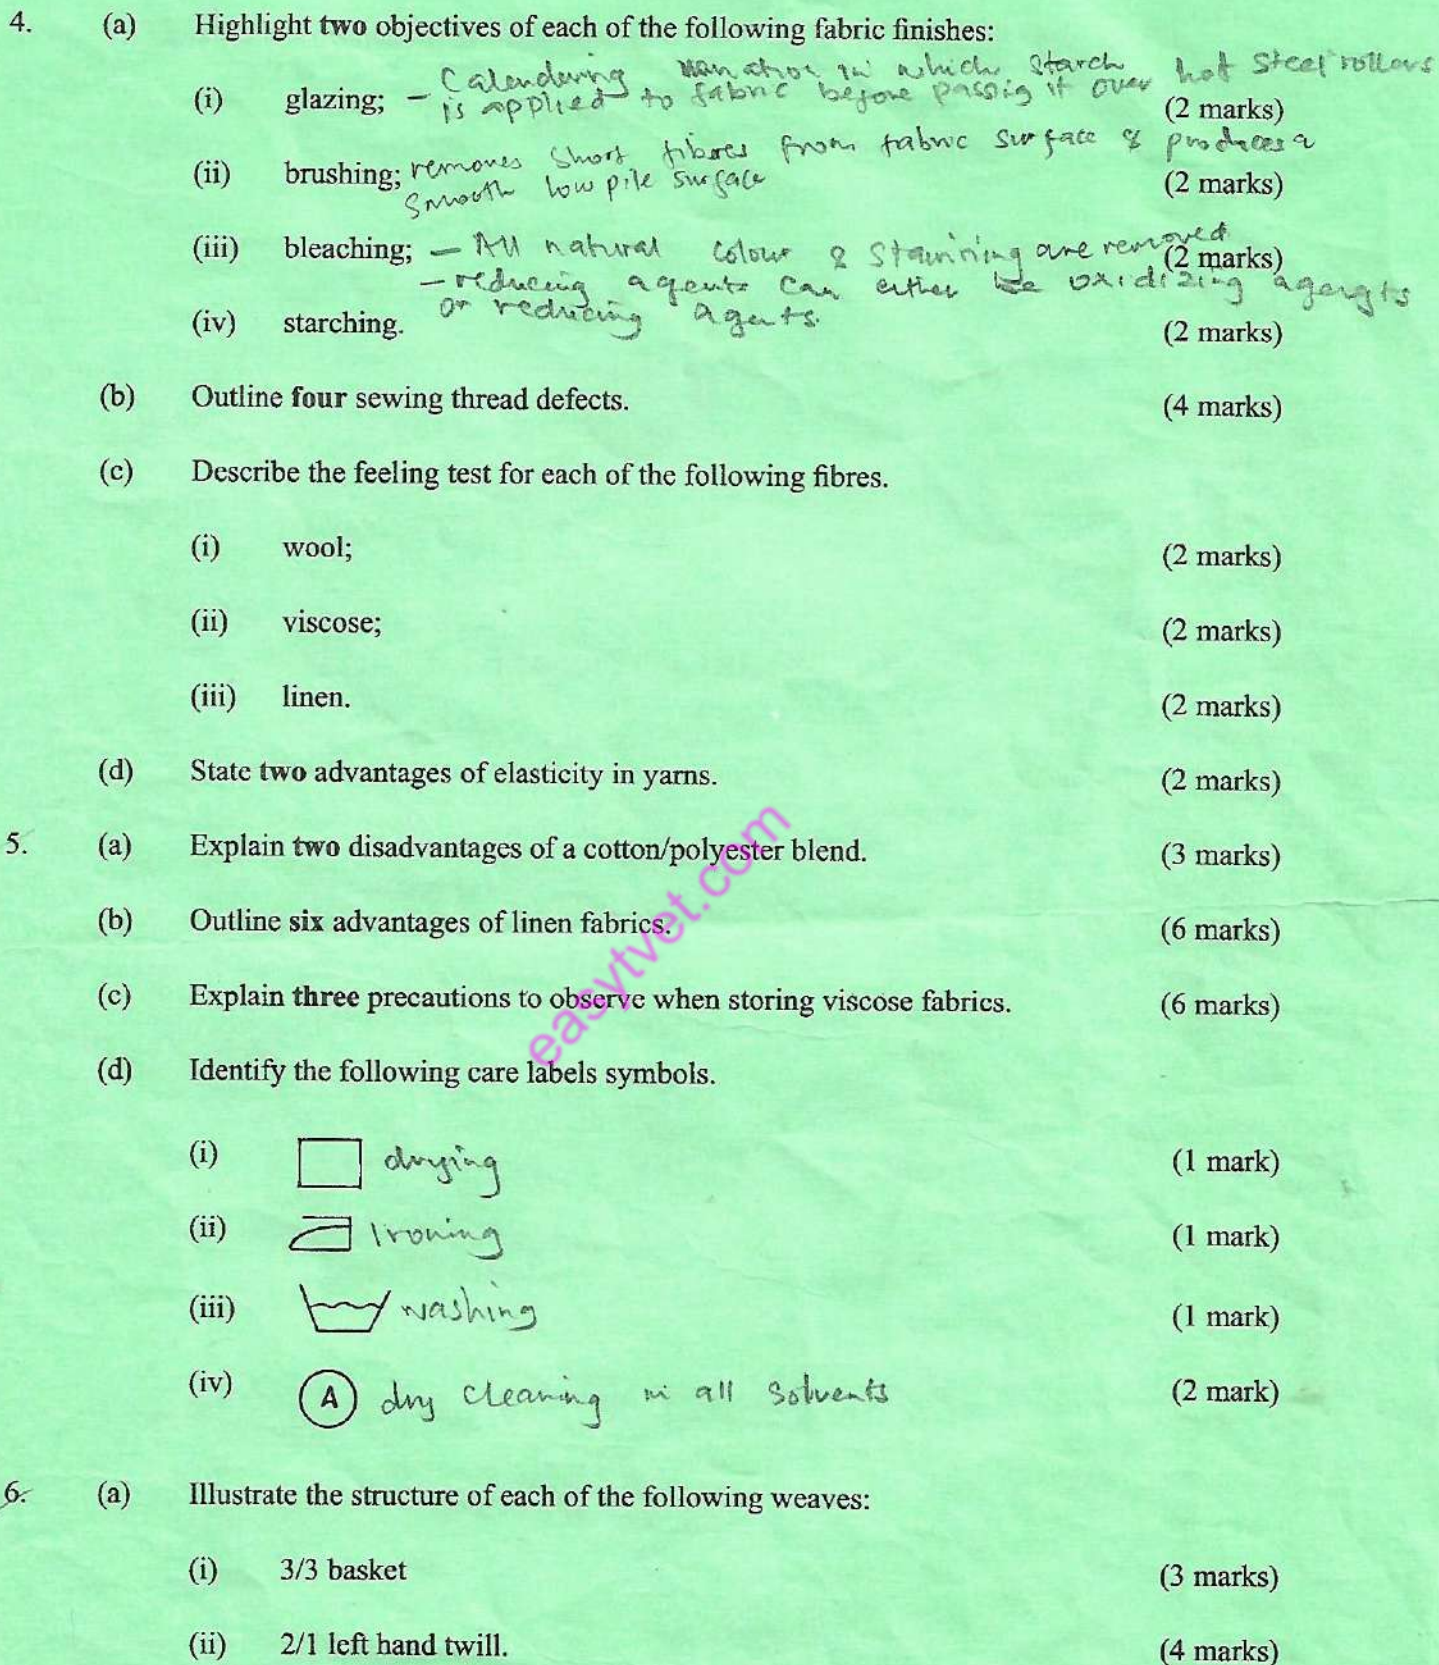 4. (a) Highlight two objectives of each of the following fabric finishes:
(i) glazing; - Calendering in which starch hot steel rollers
is applied to fabric before passig it over (2 marks)
(ii) brushing; removes short fibres from fabric surface & produces a
smooth low pile surface (2 marks)
(iii) bleaching; - All natural colour & stainining are removed (2 marks)
- reducing agents can either be oxidizing agengts
(iv) starching. or reducing agents. (2 marks)
(b) Outline four sewing thread defects. (4 marks)
(c) Describe the feeling test for each of the following fibres.
(i) wool; (2 marks)
(ii) viscose; (2 marks)
(iii) linen. (2 marks)
(d) State two advantages of elasticity in yarns. (2 marks)
5. (a) Explain two disadvantages of a cotton/polyester blend. (3 marks)
(b) Outline six advantages of linen fabrics. (6 marks)
(c) Explain three precautions to observe when storing viscose fabrics. (6 marks)
easytvet.com
(d) Identify the following care labels symbols.
(i) drying (1 mark)
(ii) Ironing (1 mark)
(iii) washing (1 mark)
(iv) A dry cleaning in all solvents (2 mark)
6. (a) Illustrate the structure of each of the following weaves:
(i) 3/3 basket (3 marks)
(ii) 2/1 left hand twill. (4 marks)